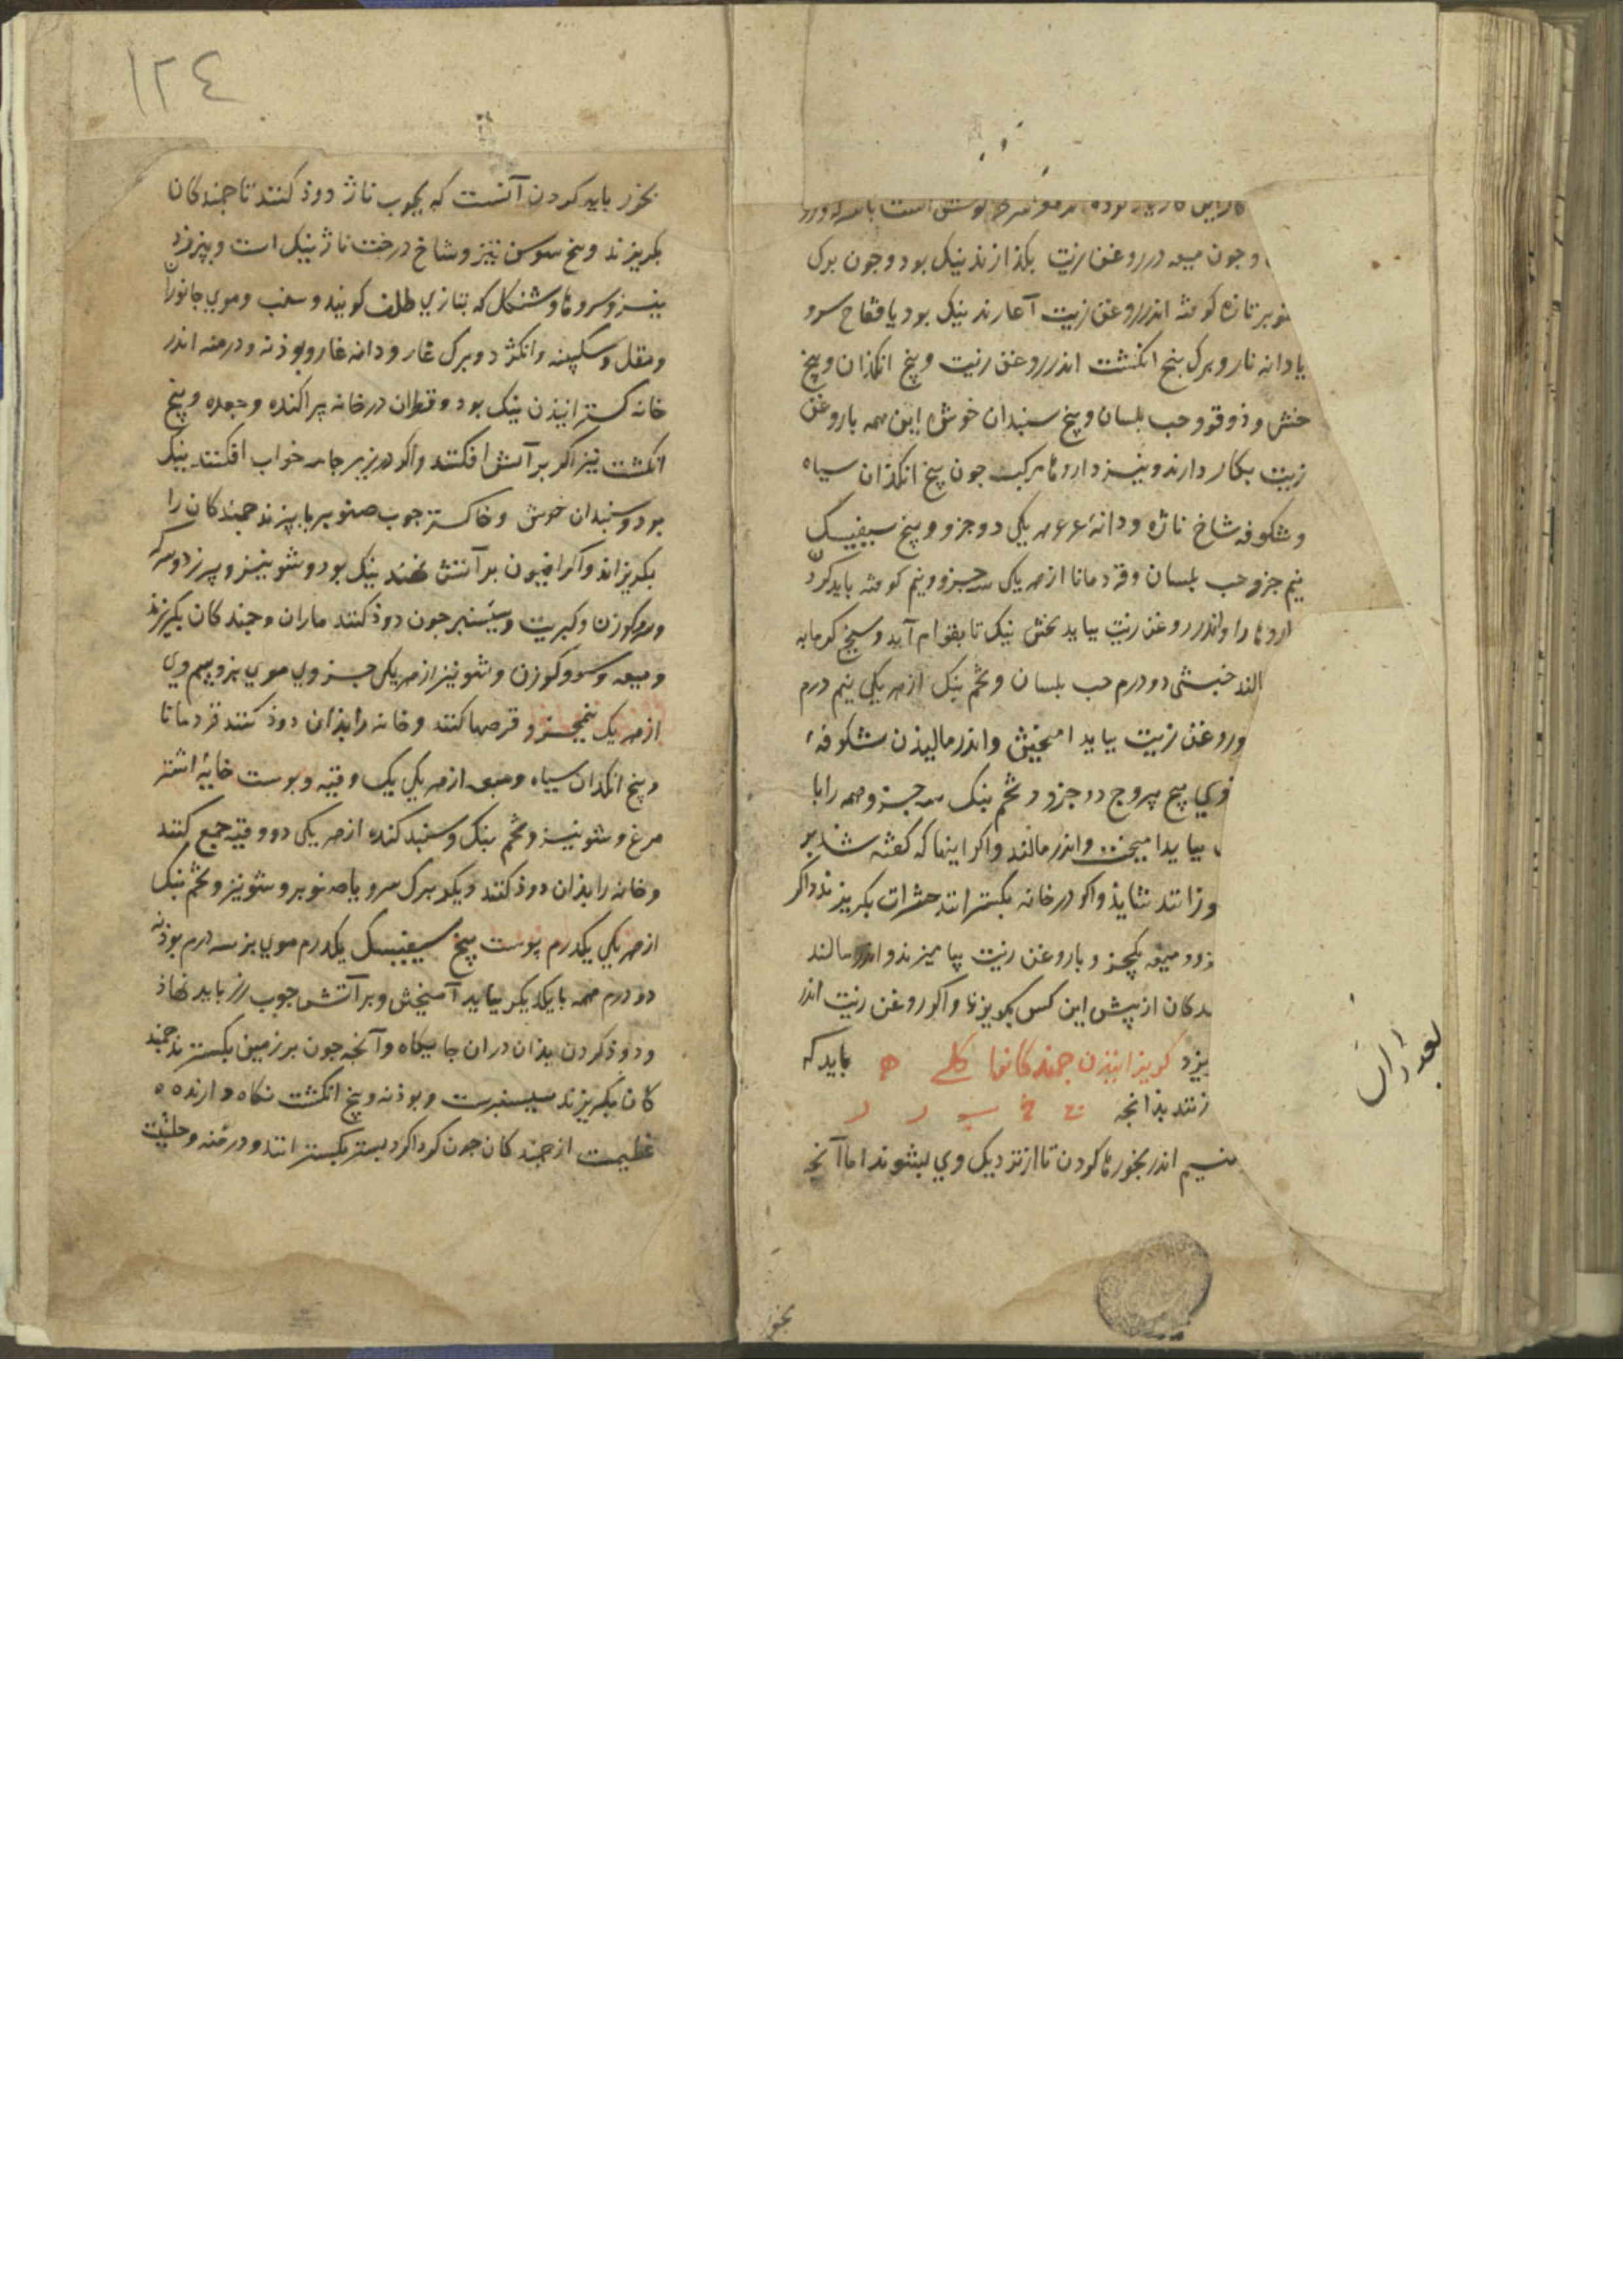 و جون میعه در روغن زیت بکذازند نیک بود و جون برک
تازه کوفته اندر روغن زیت آغارند نیک بود یا فقاح سرو
یا دانه نار و برک بنج انکشت اندر روغن زیت و بیخ انکذان و بیخ
خنثی و ذوقو و حب بلسان و بیخ سبندان خوش این همه با روغن
زیت بکار دارند و نیز داروها مرکب جون بیخ انکذان سیاه
و شکوفه شاخ تازه و دانهٔ عرعر یکی دو جزو و بیخ سیفیسک
نیم جزو حب بلسان و قردمانا از هر یکی سه جزو و نیم کوفته باید کرد
را و اندر روغن زیت بباید بختن نیک تا بقوام آید و بیخ
خنثی دو درم حب بلسان و تخم بنک از هر یکی نیم درم
و روغن زیت بباید امیختن و اندر مالیدن شکوفهٔ
بیخ یبروج دو جزو و تخم بنک سه جزو همه را با
بباید امیخت و اندر مالند و اکر اینها که کفته شد بر
نشاید و اکر در خانه بکسترانند حشرات بکریزند و اکر
و میعه یکجزو با روغن زیت بیامیزند و اندر مالند
از پیش این کس بکریزند و اکر روغن زیت اندر
کریزانیذن جمندکانها کلی ه باید که
زنند بذانجه ت خ ب ر د
اندر بخورها کردن تا از نزدیک وی بشوند اما آنجه
بعد ازان
بخو
١٢٤
بخور باید کردن آنست که بجوب ناژ دوذ کنند تا جمندکان
بکریزند و بیخ سوسن نیز و شاخ درخت ناژ نیک است و بیرزد
نیز و سروها و شنکل که بتازی ظلف کویند و سنب و موی جانوران
و مقل و سکبینه و انکژد و برک غار و دانه غار و بوذنه و درمنه اندر
خانه کسترانیذن نیک بود و قطران در خانه پراکنده و جعده و بنج
انکشت نیز اکر بر آتش افکنند و اکر در زیر جامه خواب افکنند نیک
بود و سبندان خوش و خاکستر جوب صنوبر بابیزند جمندکان را
بکریزاند و اکر افیون بر آتش نهند نیک بود و شونیز و بیرزد و سرکه
و سرو کوزن و کبریت و سیسنبر جون دوذ کنند ماران و جمندکان بکریزند
و میعه و سرو کوزن و شونیز از هر یکی جزوی موی بز و سم وی
از هر یک نیمجزو قرصها کنند و خانه را بذان دوذ کنند قردمانا
و بیخ انکذان سیاه و میعه از هر یکی یک وقیه و پوست خایهٔ اشتر
مرغ و شونیز و تخم بنک و سنبد کنده از هر یکی دو وقیه جمع کنند
و خانه را بذان دوذ کنند دیکر برک سرو یا صنوبر و شونیز و تخم بنک
از هر یکی یکدرم پوست بیخ سیفیسک یکدرم موی بز سه درم بوذنه
دو درم همه با یکدیکر بباید آمیختن و بر آتش جوب رز باید نهاذ
و دوذ کردن بذان دران جایکاه و آنجه جون بر زمین بکسترند جمند
کان بکریزند سیسنبرست و بوذنه و بنج انکشت نکاه دارنده
عظیمست از جمندکان جون کرداکرد بستر بکسترانند و درمنه و حلتیت